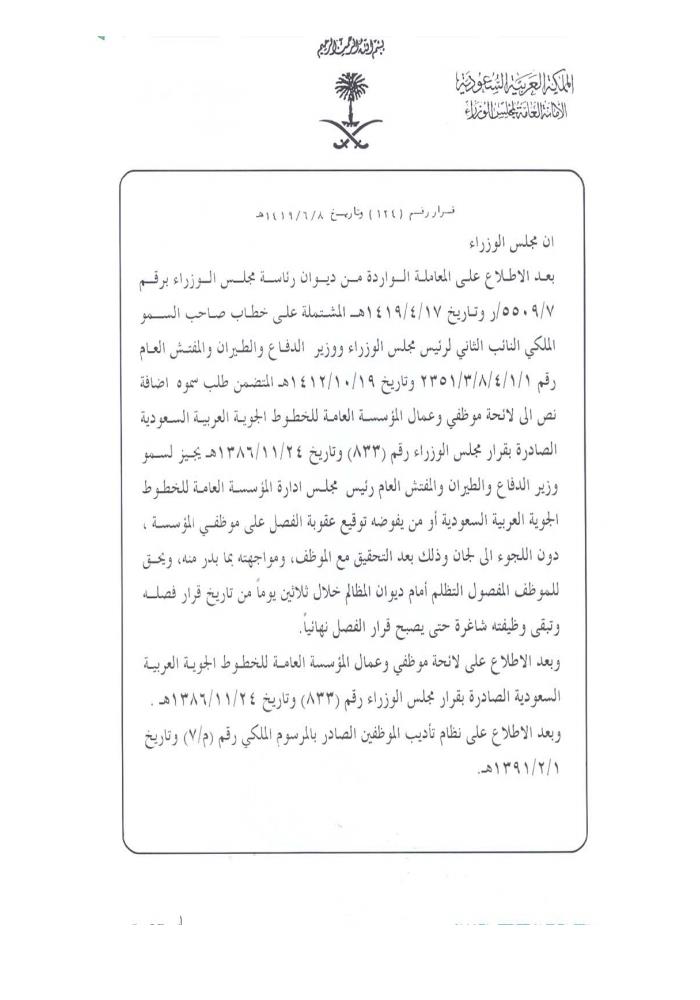 بسم الله الرحمن الرحيم
المملكة العربية السعودية
الأمانة العامة لمجلس الوزراء
قرار رقم (١٢٤) وتاريخ ١٤١٩/٦/٨هـ
ان مجلس الوزراء
بعد الاطلاع على المعاملة الواردة من ديوان رئاسة مجلس الوزراء برقم
٥٥٠٩/٧/ر وتاريخ ١٤١٩/٤/١٧هـ المشتملة على خطاب صاحب السمو
الملكي النائب الثاني لرئيس مجلس الوزراء ووزير الدفاع والطيران والمفتش العام
رقم ٢٣٥١/٣/٨/٤/١/١ وتاريخ ١٤١٢/١٠/١٩هـ المتضمن طلب سموه اضافة
نص الى لائحة موظفي وعمال المؤسسة العامة للخطوط الجوية العربية السعودية
الصادرة بقرار مجلس الوزراء رقم (٨٣٣) وتاريخ ١٣٨٦/١١/٢٤هـ يجيز لسمو
وزير الدفاع والطيران والمفتش العام رئيس مجلس ادارة المؤسسة العامة للخطوط
الجوية العربية السعودية أو من يفوضه توقيع عقوبة الفصل على موظفي المؤسسة ،
دون اللجوء الى لجان وذلك بعد التحقيق مع الموظف، ومواجهته بما بدر منه، ويحق
للموظف المفصول التظلم أمام ديوان المظالم خلال ثلاثين يوماً من تاريخ قرار فصله
وتبقى وظيفته شاغرة حتى يصبح قرار الفصل نهائياً.
وبعد الاطلاع على لائحة موظفي وعمال المؤسسة العامة للخطوط الجوية العربية
السعودية الصادرة بقرار مجلس الوزراء رقم (٨٣٣) وتاريخ ١٣٨٦/١١/٢٤هـ .
وبعد الاطلاع على نظام تأديب الموظفين الصادر بالمرسوم الملكي رقم (م/٧) وتاريخ
١٣٩١/٢/١هـ.